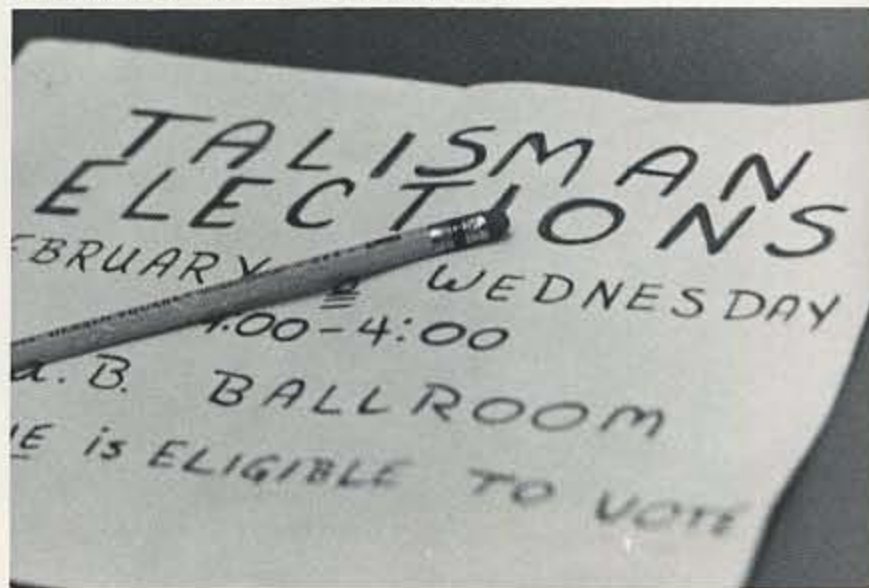 TALISMAN
ELECTIONS
EBRUARY WEDNESDAY
:00-4:00
B. BALLROOM
is ELIGIBLE TO VOTE